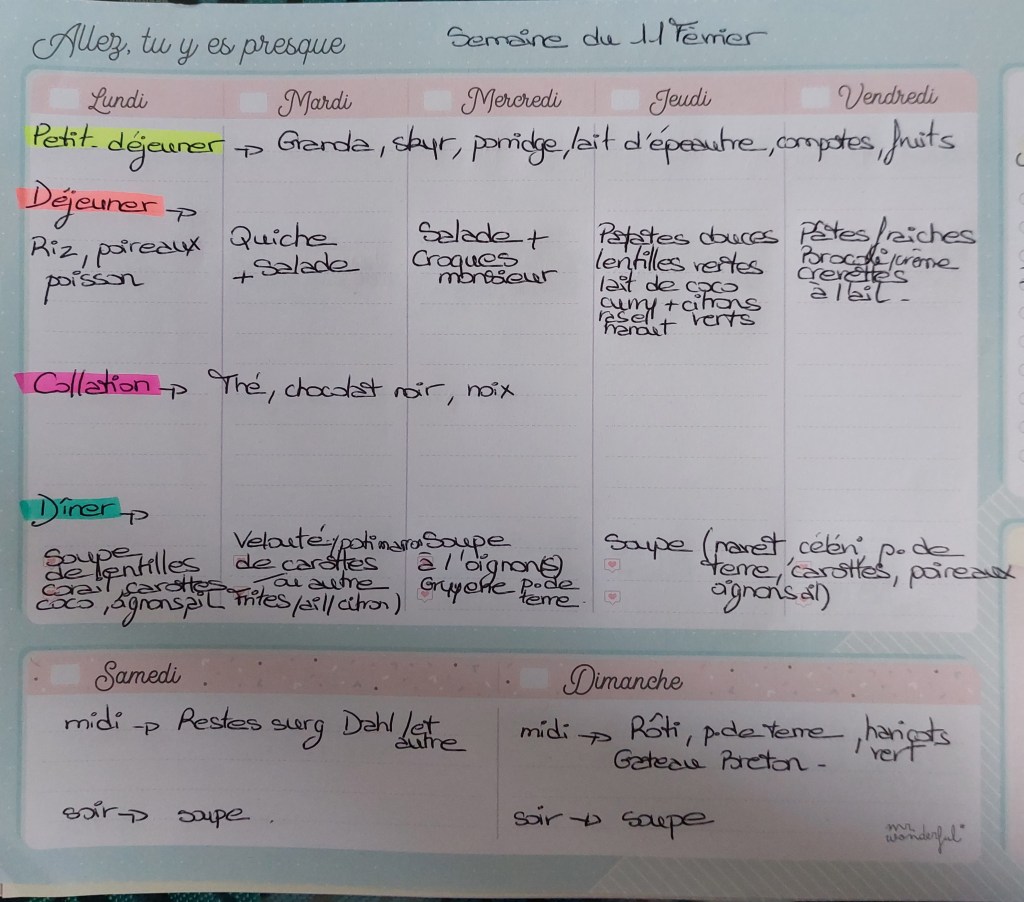 Allez, tu y es presque
Semaine du 11 Février
Lundi
Mardi
Mercredi
Jeudi
Vendredi
Petit-déjeuner → Granola, skyr, porridge/lait d'épeautre, compotes, fruits
Déjeuner →
Riz, poireaux
poisson
Quiche
+ Salade
Salade +
Croques
monsieur
Patates douces
lentilles vertes
lait de coco
curry + citrons
rasel verts
hanout
Pâtes fraiches
Brocoli/crème
crevettes
à l'ail.
Collation → Thé, chocolat noir, noix
Dîner →
Soupe
de lentilles
corail, carottes
coco, oignons ail
Velouté/potimarron
de carottes
ou autre
frites/ail/citron)
Soupe
à l'oignon(s)
Gruyère p. de
terre.
Soupe (navet, céleri, p. de
terre, carottes, poireaux
oignons ail)
Samedi
midi → Restes surg Dahl/et
autre
soir → soupe.
Dimanche
midi → Rôti, p. de terre, haricots
vert
Gateau Breton.
soir → soupe
mr.
wonderful*